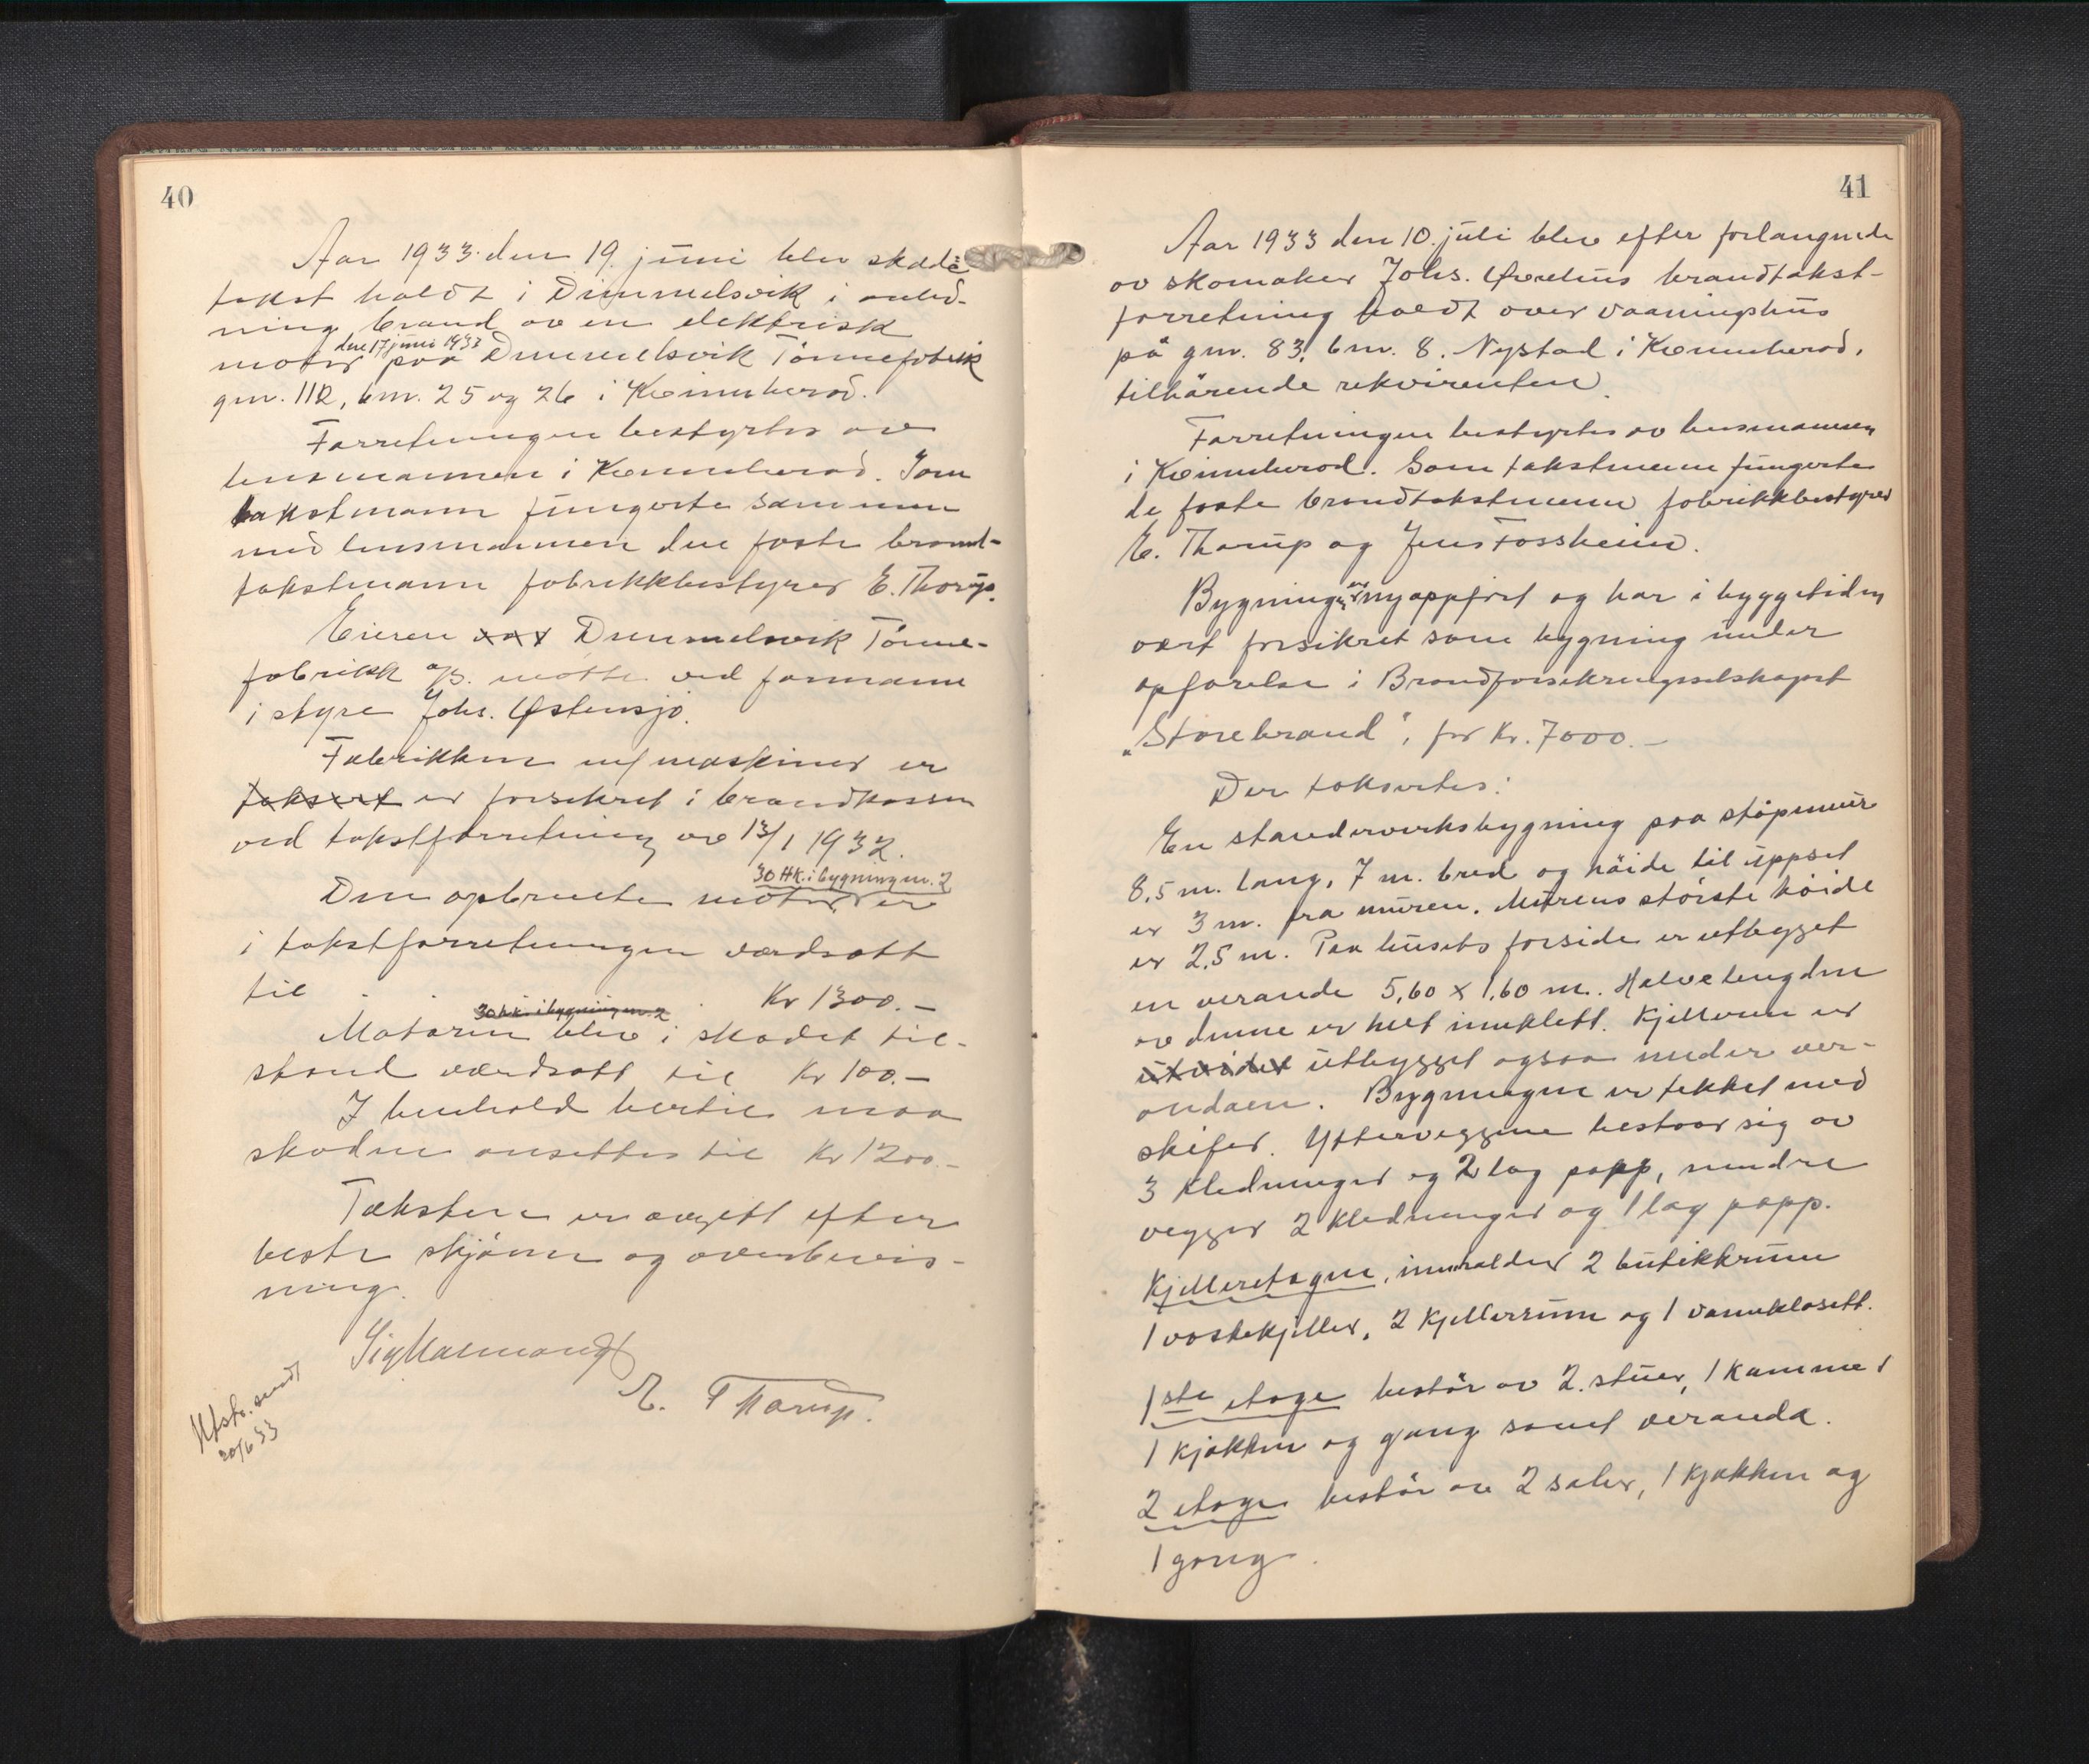 40
Aar 1933. den 19. juni blev skade
takst holdt i Dimmelsvik i anled-
ning brand av en elektrisk
den 17 juni 1933
motor paa Dimmelsvik Tönnefabrik
gnr. 112, bnr. 25 og 26 i Kvinnherad.
Forretningen bestyrtes av
lensmannen i Kvinnherad. Som
takstmann fungerte sammen
med lensmannen den faste brand-
takstmann fabrikkbestyrer E. Thorup.
Eieren var Dimmelsvik Tönne-
fabrikk a/s. møtte ved formann
i styre Johs. Østensjø.
Fabrikken m/ maskiner er
taksert er forsikret i brandkassen
ved takstforretning av 13/1 1932.
30 HK. i bygning nr. 2
Den opbrente motor er
i takstforretningen verdsatt
til . . . Kr 1300.-
30 hk. i bygning nr. 2
Motoren blev i skadet til-
stand værdsatt til Kr 100.-
I henhold hertil maa
skaden ansettes til Kr 1200.-
Taksten er avgitt efter
beste skjönn og overbevis-
ning.
E. Thorup.
Utskr. sendt
20/6 33
41
Aar 1933 den 10. juli blev efter forlangende
av skomaker Johs. brandtakst-
forretning holdt over vaaningshus
på gnr. 83, bnr. 8. Nystad i Kvinnherad,
tilhörende rekvirenten.
Forretningen bestyrtes av lensmannen
i Kvinnherad. Som takstmenn fungerte
de faste brandtakstmenn fabrikkbestyrer
E. Thorup og Jens Fossheim.
Bygningen er nyoppfört og har i byggetiden
vært forsikret som bygning under
opförelse i Brandforsikringsselskapet
"Storebrand", for Kr. 7000.-
Der taksertes:
En standerverksbygning paa støpemur
8,5 m. lang, 7 m. bred og höide til uppset
er 3 m. fra muren. Murens störste höide
er 2,5 m. Paa husets forside er utbygget
en verande 5,60 x 1,60 m. Halve lengden
av denne er helt innklett. Kjelleren er
utvidet utbygget ogsaa under ver-
andaen. Bygningen er tekket med
skifer. Ytterveggene bestaar sig av
3 kledninger og 2 lag papp, mindre
vegger 2 kledninger og 1 lag papp.
Kjelleretagen, inneholder 2 butikkrum
1 vaskekjeller, 2 kjellerrum og 1 vannklosett.
1ste etage består av 2. stuer, 1 kammer
1 kjøkken og gang samt veranda.
2 etage består av 2 saler, 1 kjøkken og
1 gang.